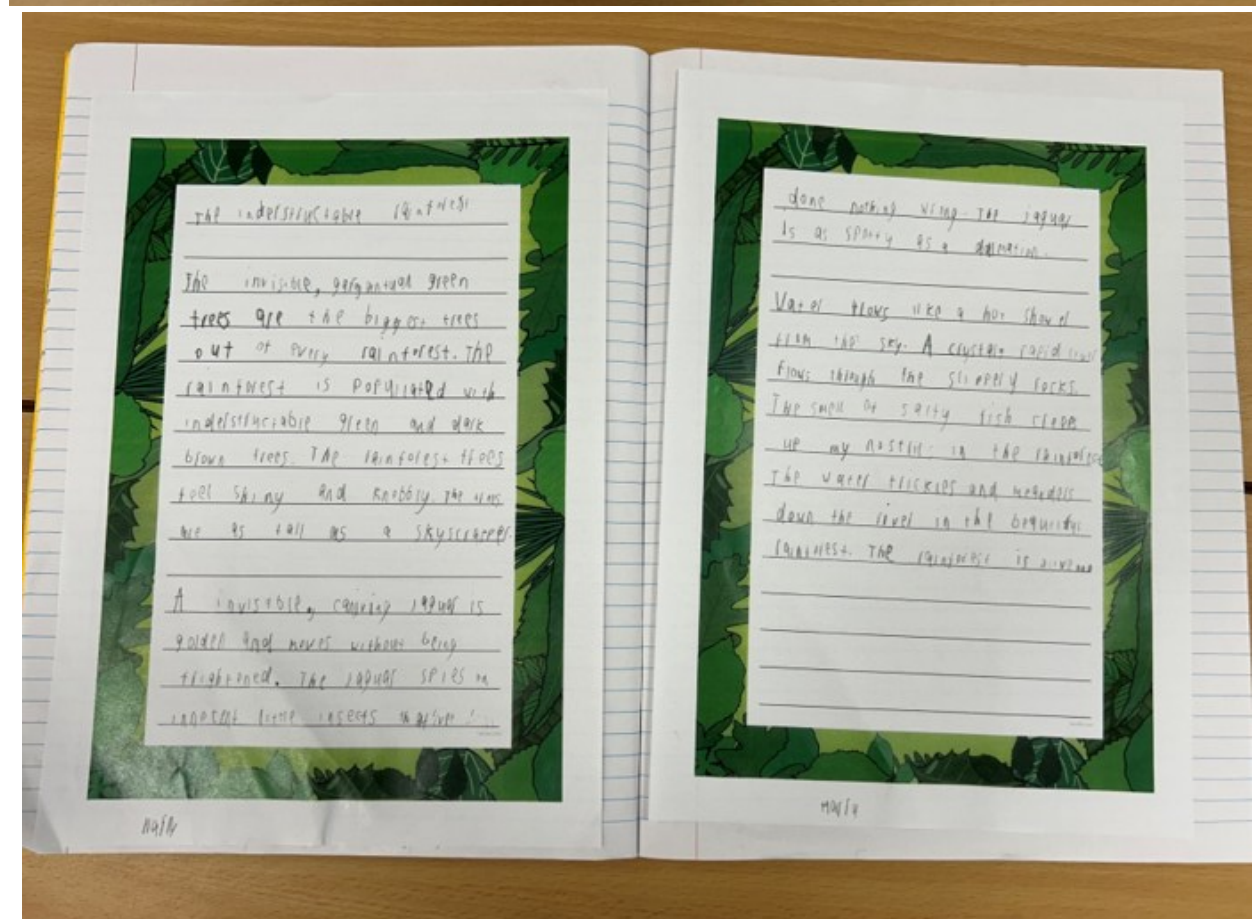 The inderstructable rainforest
The invisible, gargantuan green
trees are the biggest trees
out of every rainforest. The
rainforest is populated with
inderstructable green and dark
brown trees. The rainforest trees
feel shiny and knobbly. The trees
are as tall as a skyscraper.
A invisible, camping jaguar is
golden and moves without being
frightoned. The jaguar spies on
innocent little insects
done nothing wrong. The jaguar
is as spotty as a dalmation.
Water flows like a hot shower
from the sky. A crystal rapid river
flows through the slippery rocks.
The smell of salty fish creeps
up my nostrils in the rainforest
The water trickles and meanders
down the river in the beautiful
rainforest. The rainforest is